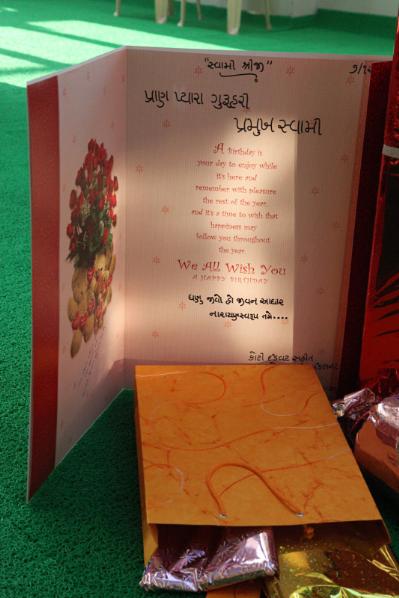 "સ્વામી શ્રીજી"
પ્રાણ પ્યારા ગુરૂહરી
પ્રમુખ સ્વામી
A Birthday is
your day to enjoy while
it's here and
remember with pleasure
the rest of the year,
and it's a time to wish that
happiness may
follow you throughout
the year.
We All Wish You
A HAPPY BIRTHDAY
ઘણુ જીવો હો જીવન આધાર
નારાયણસ્વરૂપ તમે....
કોટી દંડવટ સહીત